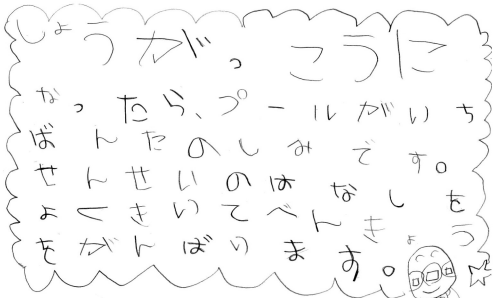 しょうがっこうに
なったら、プールがいち
ばんたのしみです。
せんせいのはなしを
よくきいてべんきょう
をがんばります。